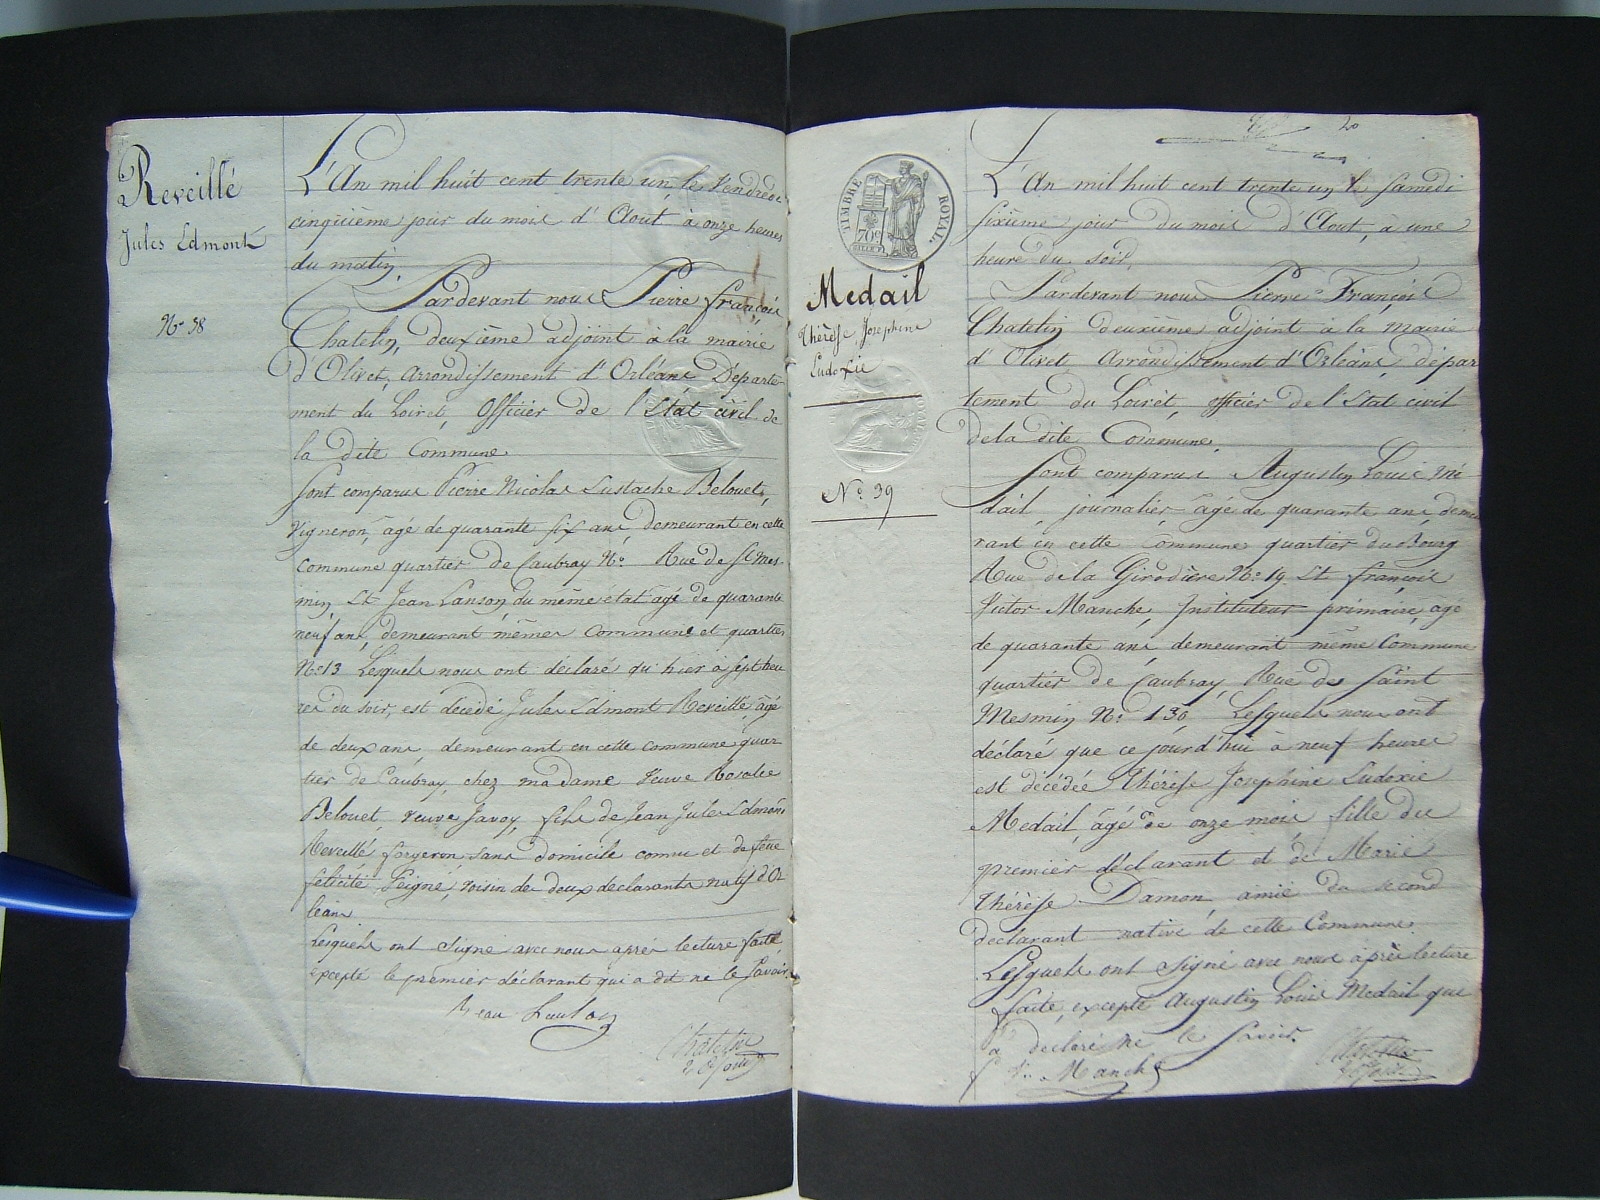 Reveillé
Jules Edmont
N.º 38
L'An mil huit cent trente un le Vendredi
cinquième jour du mois d'Aout à onze heures
du matin,
Pardevant nous Pierre françois
Chatelin, deuxième adjoint à la mairie
d'Olivet, arrondissement d'Orléans Départe-
ment du Loiret, Officier de l'État civil de
la dite Commune
Sont comparus Pierre Nicolas Eustache Belouet,
Vigneron, âgé de quarante six ans, demeurant en cette
Commune quartier de Caubray N.º Rue de St Mes-
min, Et Jean Lanson, du même etat agé de quarante
neuf ans, demeurant mêmes Commune et quartier
N.º 13 Lesquels nous ont déclaré qu'hier à sept heu
res du soir, est décédé Jules Edmont Reveillé âgé
de deux ans, demeurant en cette commune quar
tier de Caubray, chez madame Veuve Rosalie
Belouet, veuve Javoy, fils de Jean Jules Edmont
Reveillé forgeron sans domicile connu et de feue
félicité Peigné, voisin des deux declarants natif d'Or
leans
Lesquels ont signé avec nous après lecture faite,
excepté le premier déclarant qui a dit ne le Savoir.
Chatelin
20
TIMBRE ROYAL
70c
Medail
Thérèse Josephine
Ludoxie
N.º 39
L'An mil huit cent trente un le Samedi
Sixième jour du mois d'Aout, à une
heure du soir,
Pardevant nous Pierre François
Chatelin deuxième adjoint à la mairie
d'Olivet, Arrondissement d'Orléans, dépar
tement du Loiret, officier de l'Etat civil
de la dite Commune,
Sont comparus Augustin Louis Mé
dail, journalier âgé de quarante ans, demeu
rant en cette Commune quartier du Bourg
Rue de la Girodière N.º 19 Et françois
Victor Manche, Instituteur primaire, agé
de quarante ans demeurant même Commune
quartier de Caubray, Rue de Saint
Mesmin N.º 130, Lesquels nous ont
déclaré que ce jourd'hui à neuf heures
est décédée Thérèse Josephine Ludoxie
Medail, âgé de onze mois fille du
premier déclarant et de Marie
Thérèse Damon, amie du second
declarant native de cette Commune.
Lesquels ont signé avec nous après lecture
faite, excepté Augustin Louis Medail que
a declaré ne le Savoir.
Manche
Chatelin